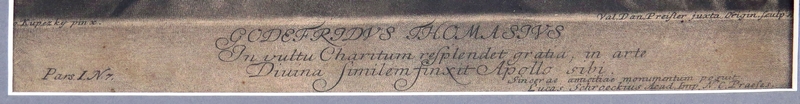 Kupezky pinx.
Val. Dan. Preisler juxta Origin. sculps.
GODEFRIDVS THOMASIVS
In vultu Charitum resplendet gratia, in arte
Divina similem finxit Apollo sibi.
Pars I. N 7.
Sincerae amicitiae monumentum posuit
Lucas Schroeckius Acad. Imp. N. C. Praeses.